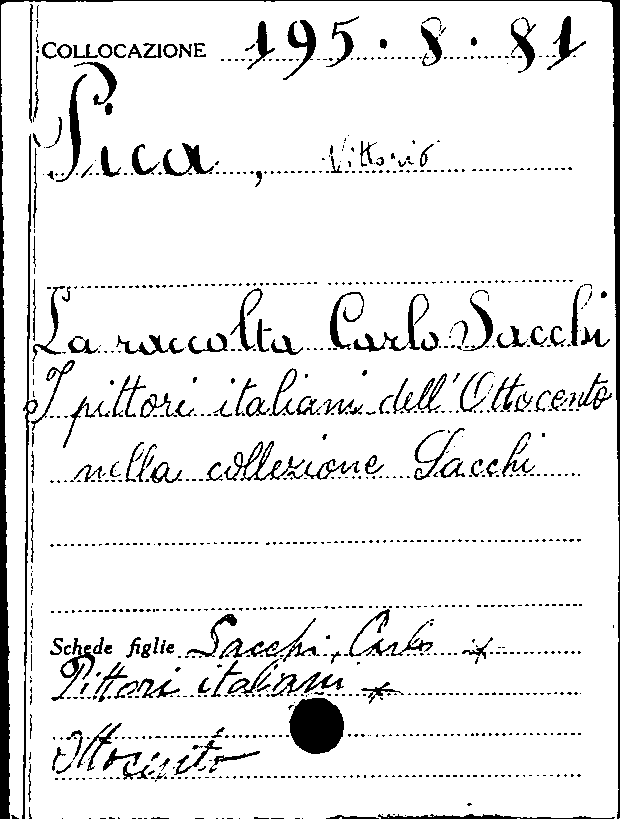 COLLOCAZIONE 195.8.81
Pica, Vittorio
La raccolta Carlo Sacchi
I pittori italiani dell'Ottocento
nella collezione Sacchi
Schede figlie Sacchi, Carlo *
Pittori italiani *
Ottocento